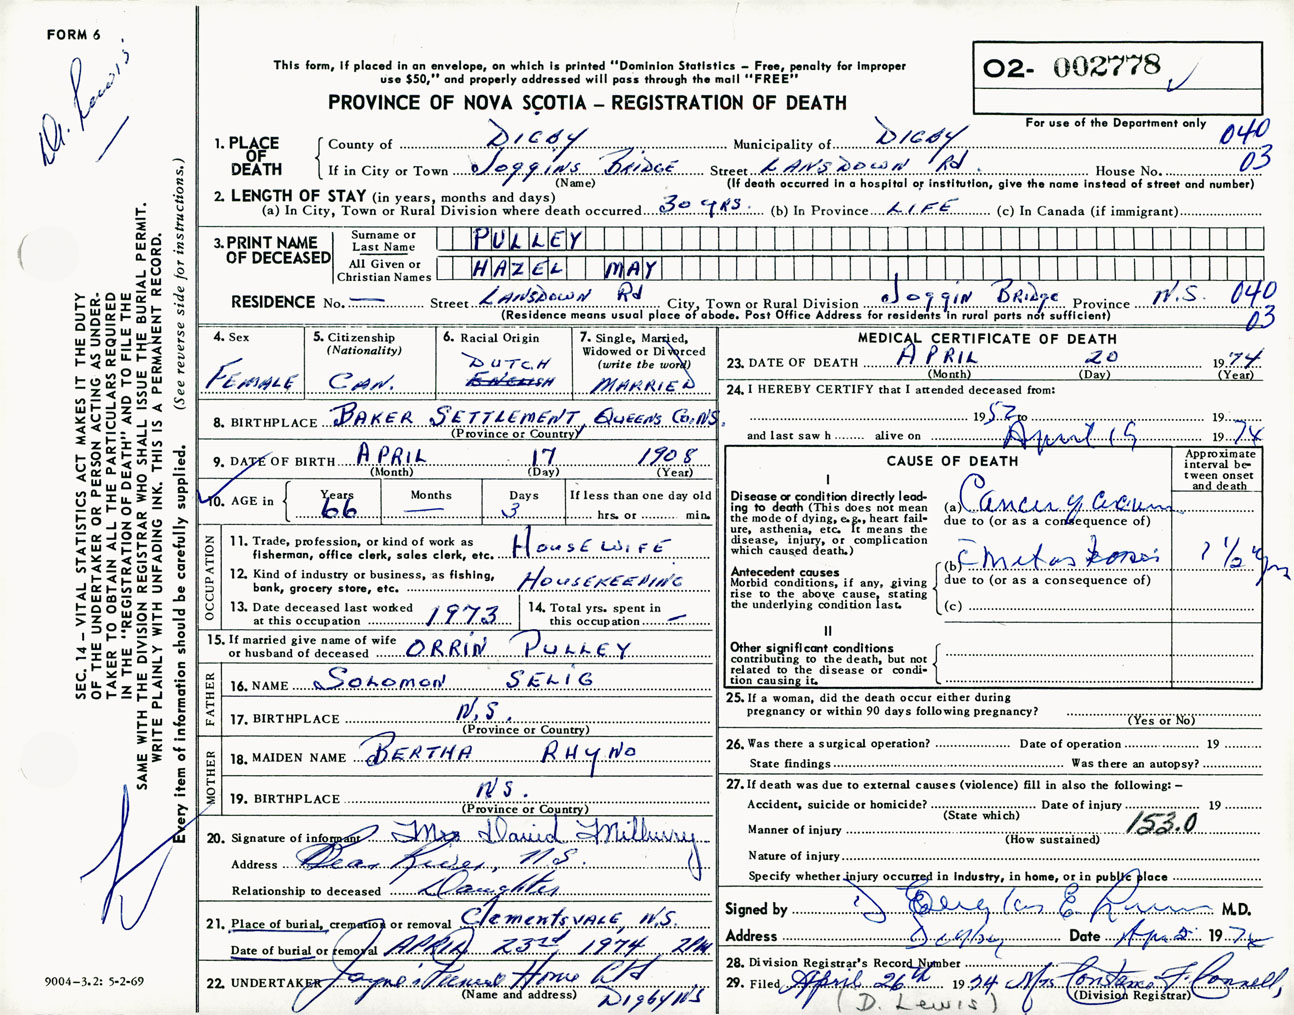 FORM 6
Dr. Lewis
This form, if placed in an envelope, on which is printed "Dominion Statistics – Free, penalty for improper
use $50," and properly addressed will pass through the mail "FREE"
O2- 002778
PROVINCE OF NOVA SCOTIA – REGISTRATION OF DEATH
For use of the Department only
040
03
1. PLACE OF DEATH
County of DIGBY Municipality of DIGBY
If in City or Town Joggins BRIDGE Street LANSDOWN Rd. House No.
(Name) (If death occurred in a hospital or institution, give the name instead of street and number)
2. LENGTH OF STAY (in years, months and days)
(a) In City, Town or Rural Division where death occurred 30 YRS. (b) In Province LIFE (c) In Canada (if immigrant)
3. PRINT NAME OF DECEASED
Surname or Last Name PULLEY
All Given or Christian Names HAZEL MAY
RESIDENCE No. — Street LANSDOWN Rd City, Town or Rural Division Joggin BRIDGE Province N.S. 040
(Residence means usual place of abode. Post Office Address for residents in rural parts not sufficient) 03
4. Sex
FEMALE
5. Citizenship
(Nationality)
CAN.
6. Racial Origin
DUTCH
ENGLISH
7. Single, Married,
Widowed or Divorced
(write the word)
MARRIED
8. BIRTHPLACE BAKER SETTLEMENT, QUEENS CO. N.S.
(Province or Country)
9. DATE OF BIRTH APRIL 17 1908
(Month) (Day) (Year)
10. AGE in Years Months Days If less than one day old
66 — 3 hrs. or min.
OCCUPATION
11. Trade, profession, or kind of work as
fisherman, office clerk, sales clerk, etc. HOUSEWIFE
12. Kind of industry or business, as fishing,
bank, grocery store, etc. HOUSEKEEPING
13. Date deceased last worked
at this occupation 1973
14. Total yrs. spent in
this occupation —
15. If married give name of wife
or husband of deceased ORRIN PULLEY
FATHER
16. NAME SOLOMON SELIG
17. BIRTHPLACE N.S.
(Province or Country)
MOTHER
18. MAIDEN NAME BERTHA RHYNO
19. BIRTHPLACE N.S.
(Province or Country)
20. Signature of informant Mrs David Milbury
Address Bear River, N.S.
Relationship to deceased Daughter
21. Place of burial, cremation or removal Clementsvale, N.S.
Date of burial or removal APRIL 23rd 1974 2PM
22. UNDERTAKER Jayne's Funeral Home Ltd
(Name and address) Digby NS
MEDICAL CERTIFICATE OF DEATH
23. DATE OF DEATH APRIL 20 1974
(Month) (Day) (Year)
24. I HEREBY CERTIFY that I attended deceased from:
1952 to 19
and last saw h alive on April 19 1974
CAUSE OF DEATH
Approximate
interval be-
tween onset
and death
I
Disease or condition directly lead-
ing to death (This does not mean
the mode of dying, e.g., heart fail-
ure, asthenia, etc. It means the
disease, injury, or complication
which caused death.)
(a) Cancer of cecum
due to (or as a consequence of)
Antecedent causes
Morbid conditions, if any, giving
rise to the above cause, stating
the underlying condition last.
(b) c̄ metastasis ? 1 1/2 yrs
due to (or as a consequence of)
(c)
II
Other significant conditions
contributing to the death, but not
related to the disease or condi-
tion causing it.
25. If a woman, did the death occur either during
pregnancy or within 90 days following pregnancy?
(Yes or No)
26. Was there a surgical operation? Date of operation 19
State findings Was there an autopsy?
27. If death was due to external causes (violence) fill in also the following: –
Accident, suicide or homicide? Date of injury 19
(State which)
Manner of injury 153.0
(How sustained)
Nature of injury
Specify whether injury occurred in Industry, in home, or in public place
Signed by Douglas E Lewis M.D.
Address Digby Date 1974
28. Division Registrar's Record Number
29. Filed April 26th 1974 Mrs Constance F. Connell,
(D. Lewis) (Division Registrar)
SEC. 14 – VITAL STATISTICS ACT MAKES IT THE DUTY
OF THE UNDERTAKER OR PERSON ACTING AS UNDER-
TAKER TO OBTAIN ALL THE PARTICULARS REQUIRED
IN THE "REGISTRATION OF DEATH" AND TO FILE THE
SAME WITH THE DIVISION REGISTRAR WHO SHALL ISSUE THE BURIAL PERMIT.
WRITE PLAINLY WITH UNFADING INK. THIS IS A PERMANENT RECORD.
Every item of information should be carefully supplied. (See reverse side for instructions.)
9004–3.2: 5-2-69